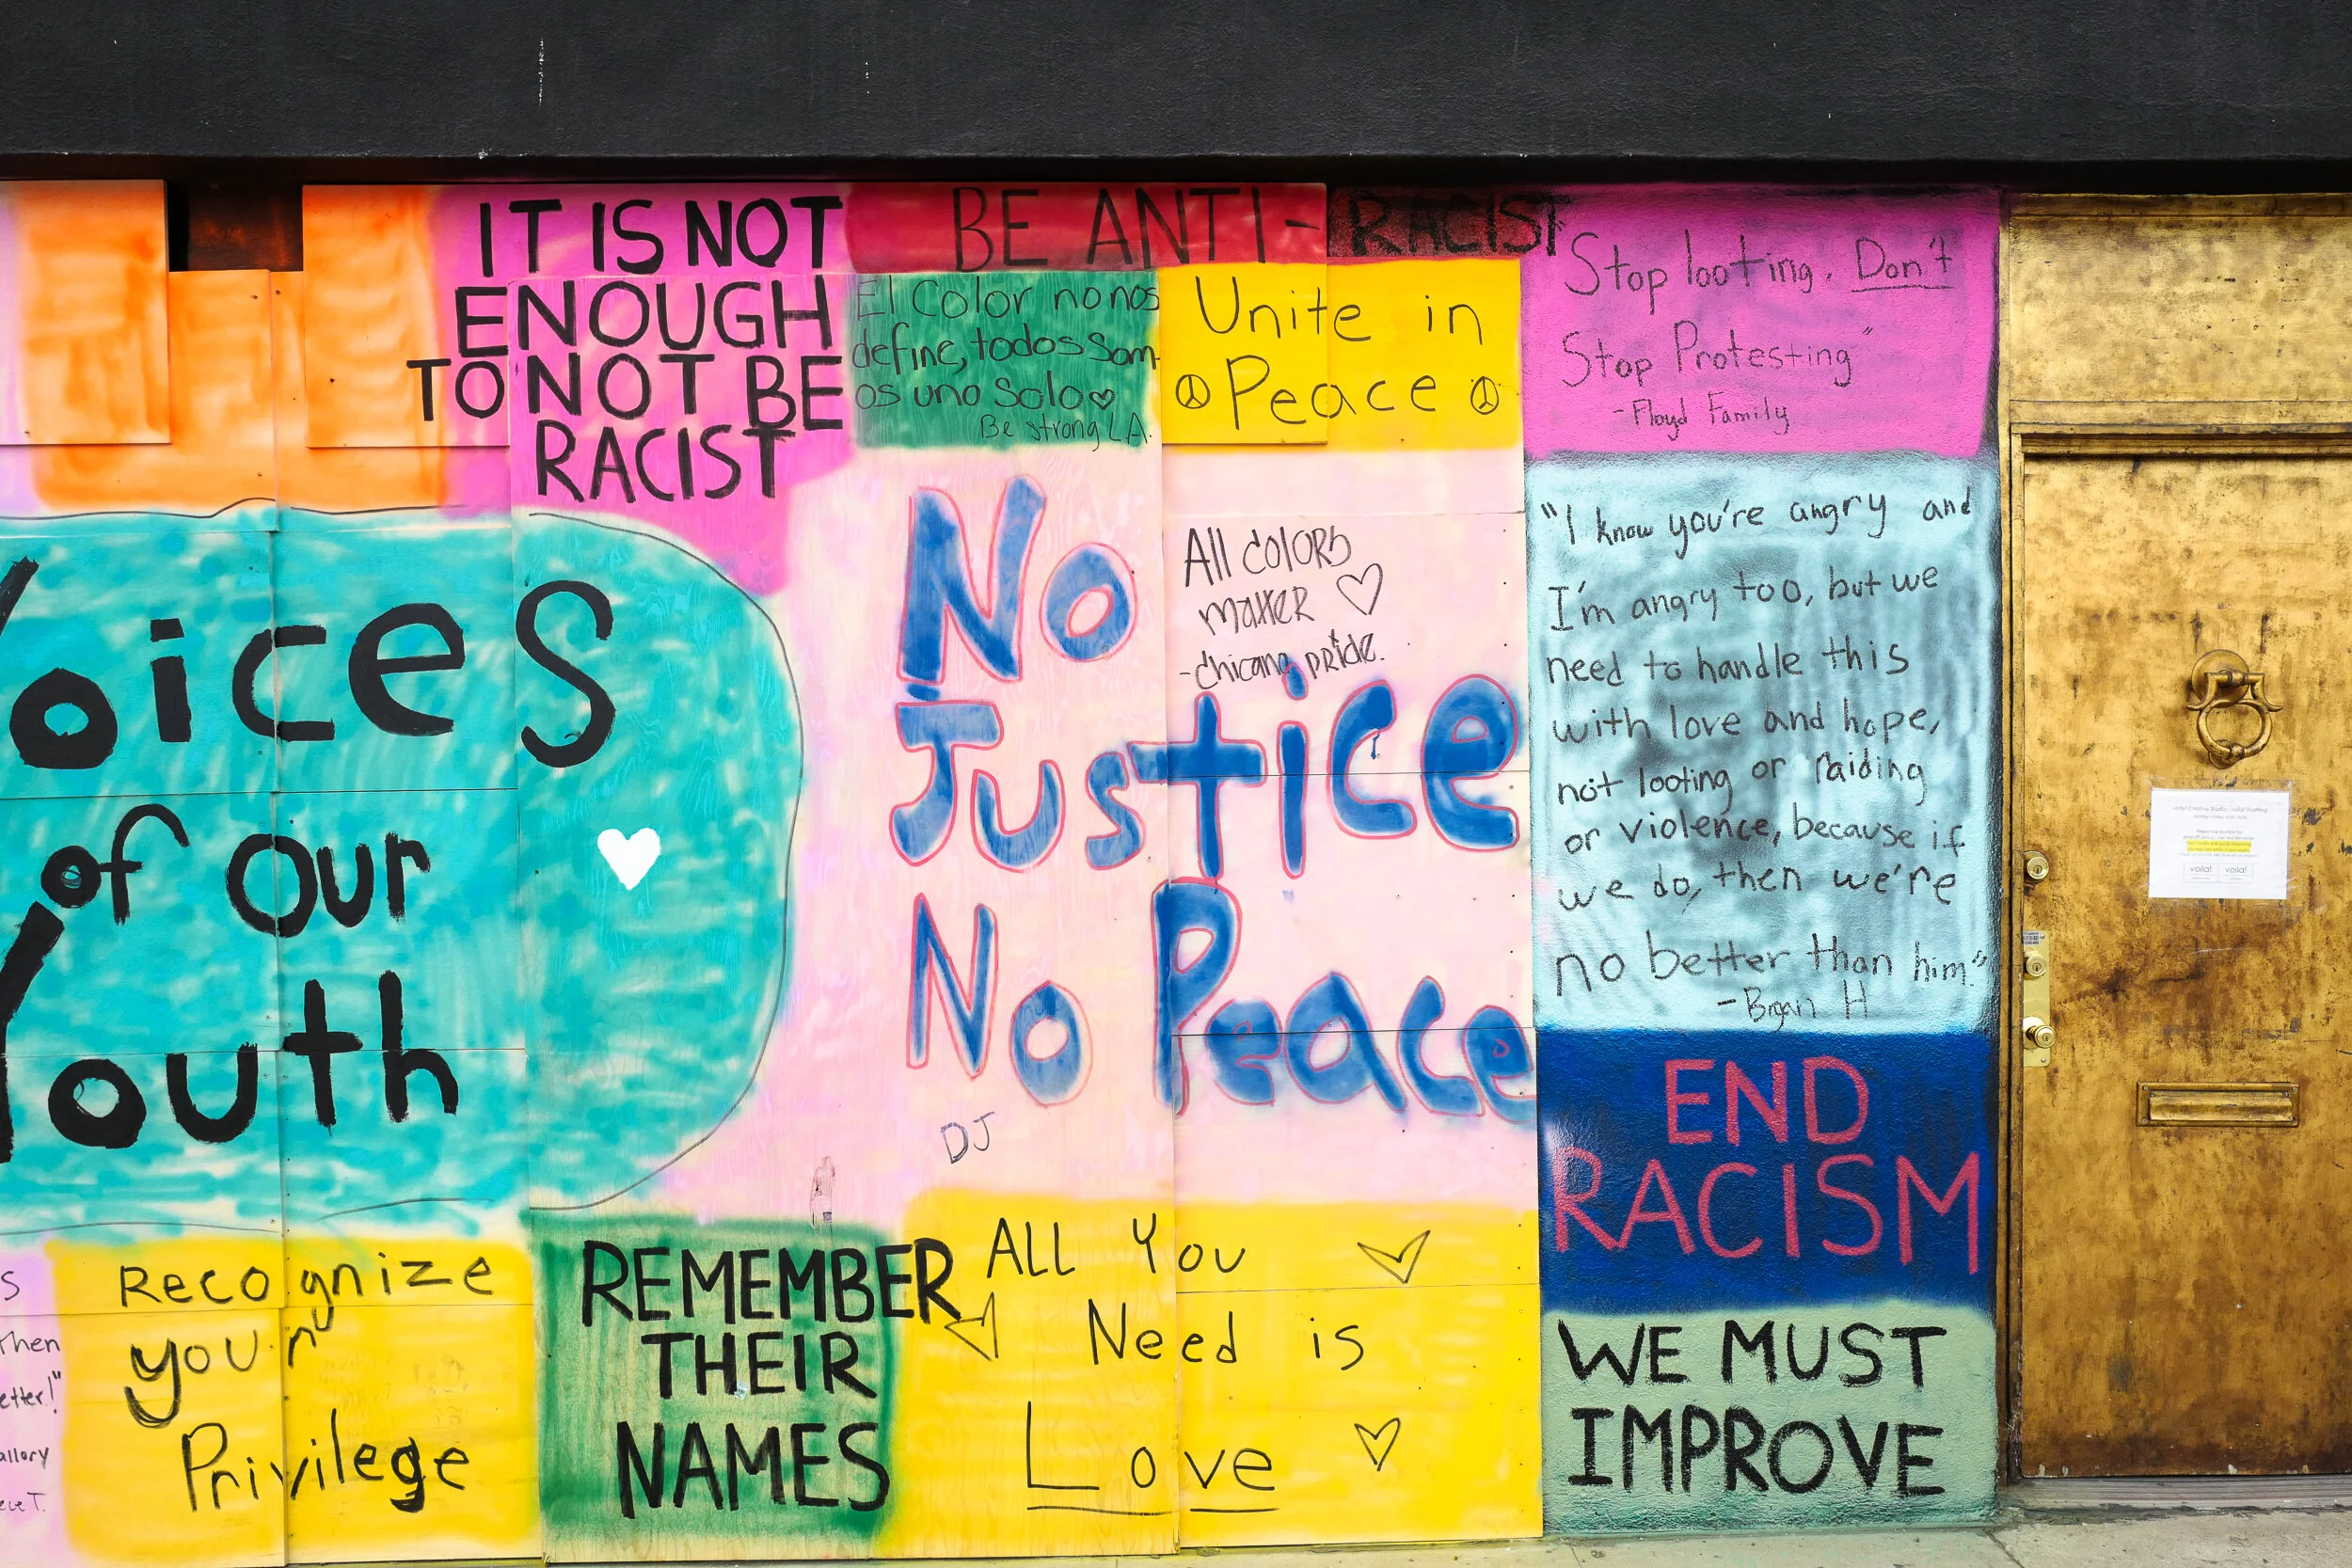 IT IS NOT
ENOUGH
TO NOT BE
RACIST
BE ANTI-RACIST
El Color no nos
define, todos Som-
os uno solo♡
Be strong LA.
Unite in
☮Peace☮
Stop looting. Don't
Stop Protesting"
-Floyd Family
Voices
of our
Youth
No
Justice
No Peace
DJ
All colors
matter ♡
-chicano pride.
"I know you're angry and
I'm angry too, but we
need to handle this
with love and hope,
not looting or raiding
or violence, because if
we do, then we're
no better than him"
-Bryan H
END
RACISM
WE MUST
IMPROVE
Recognize
your
Privilege
REMEMBER
THEIR
NAMES
All You
Need is
Love
s
Then
etter!"
allory
voila! voila!